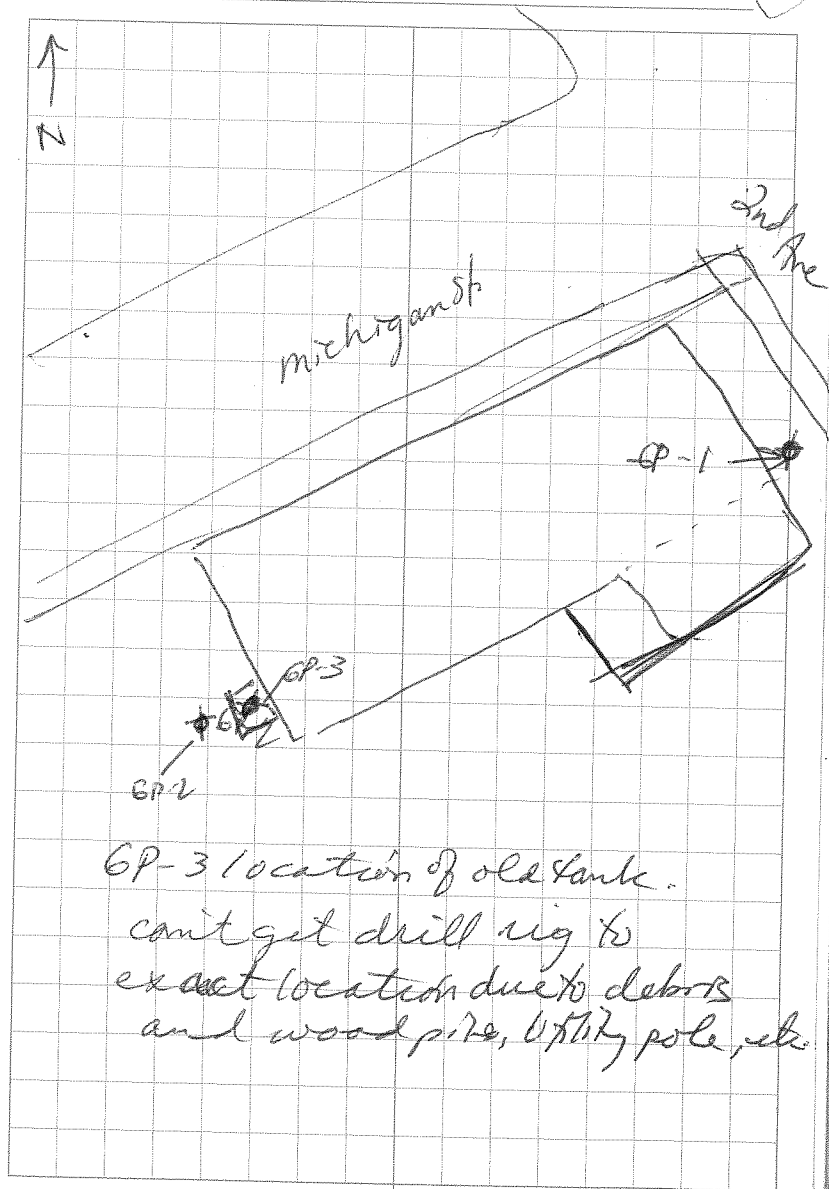 N
2nd
Ave
michigan St.
GP-1
GP-3
GP-2
GP-3 location of old tank.
can't get drill rig to
exact location due to debris
and wood pile, utility pole, etc.